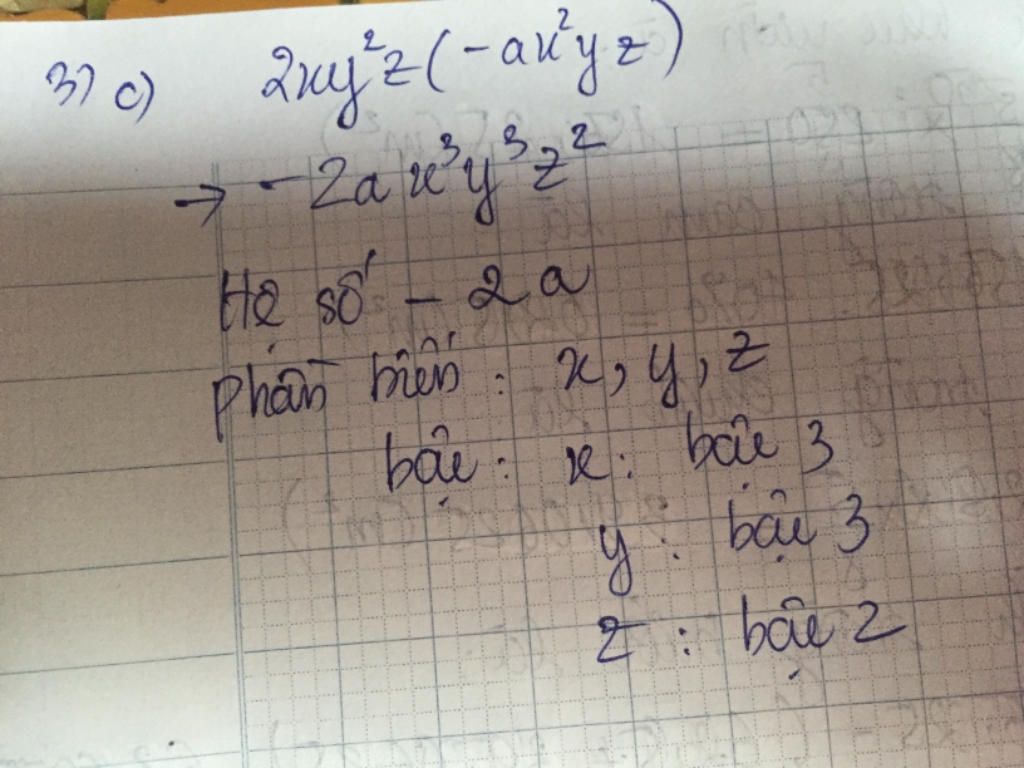 3) c) 2xy²z(-ax²yz)
→ -2ax³y³z²
Hệ số -2a
phần biến: x, y, z
bậc: x: bậc 3
y: bậc 3
z: bậc 2